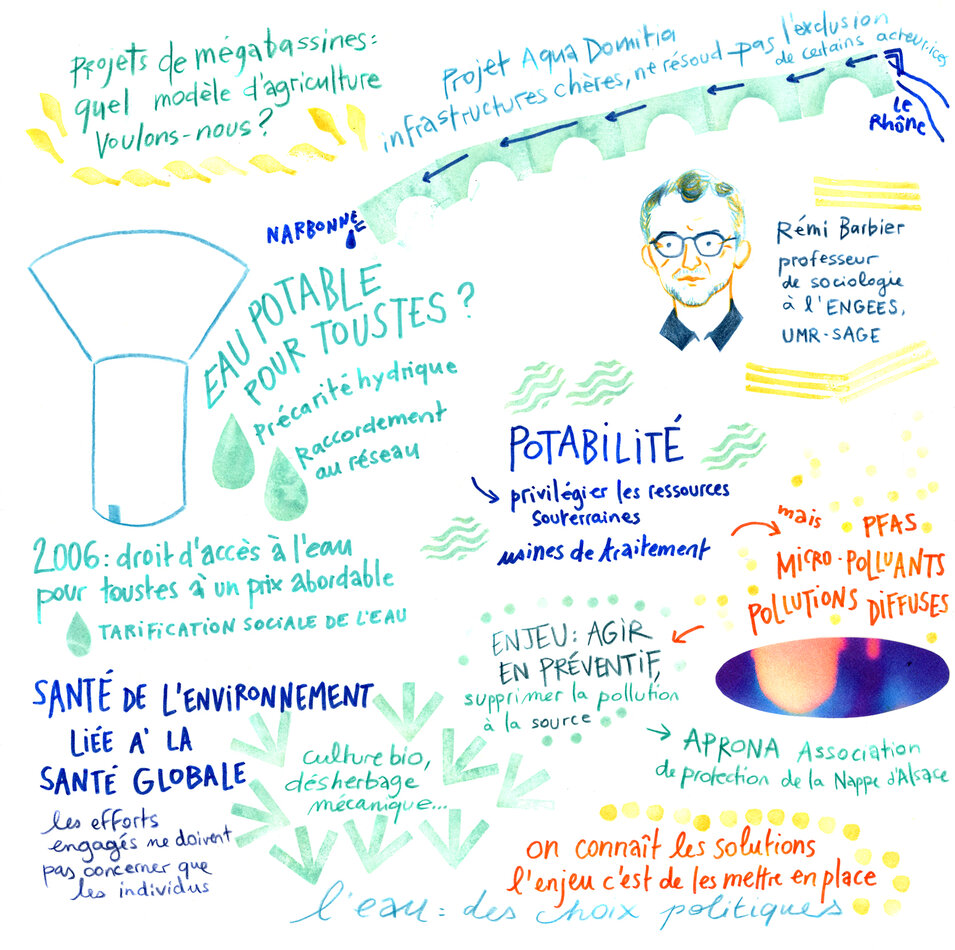 Projets de mégabassines :
quel modèle d'agriculture
voulons-nous ?
Projet Aqua Domitia
infrastructures chères, ne résoud pas l'exclusion
de certains acteur.ices
Le
Rhône
NARBONNE
Rémi Barbier
professeur
de sociologie
à l'ENGEES,
UMR-SAGE
EAU POTABLE
POUR TOUSTES ?
Précarité hydrique
Raccordement
au réseau
POTABILITÉ
privilégier les ressources
souterraines
usines de traitement
mais PFAS
MICRO-POLLUANTS
POLLUTIONS DIFFUSES
2006 : droit d'accès à l'eau
pour toustes à un prix abordable
TARIFICATION SOCIALE DE L'EAU
ENJEU : AGIR
EN PRÉVENTIF,
supprimer la pollution
à la source
APRONA Association
de protection de la Nappe d'Alsace
SANTÉ DE L'ENVIRONNEMENT
LIÉE A' LA
SANTÉ GLOBALE
les efforts
engagés ne doivent
pas concerner que
les individus
culture bio,
désherbage
mécanique...
on connaît les solutions
l'enjeu c'est de les mettre en place
l'eau : des choix politiques